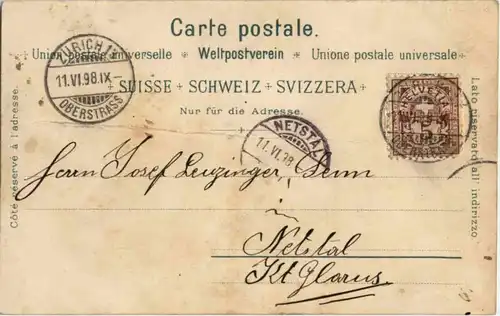 Carte postale.
Union postale universelle * Weltpostverein * Unione postale universale
* SUISSE * SCHWEIZ * SVIZZERA *
Nur für die Adresse.
ZÜRICH
11.VI.98.IX-
OBERSTRASS
NETSTAL
11.VI.98
HELVETIA
5
Côté réservé à l'adresse.
Lato riservato all' indirizzo
Herrn Josef Leuzinger, Senn
Netstal
Kt Glarus.